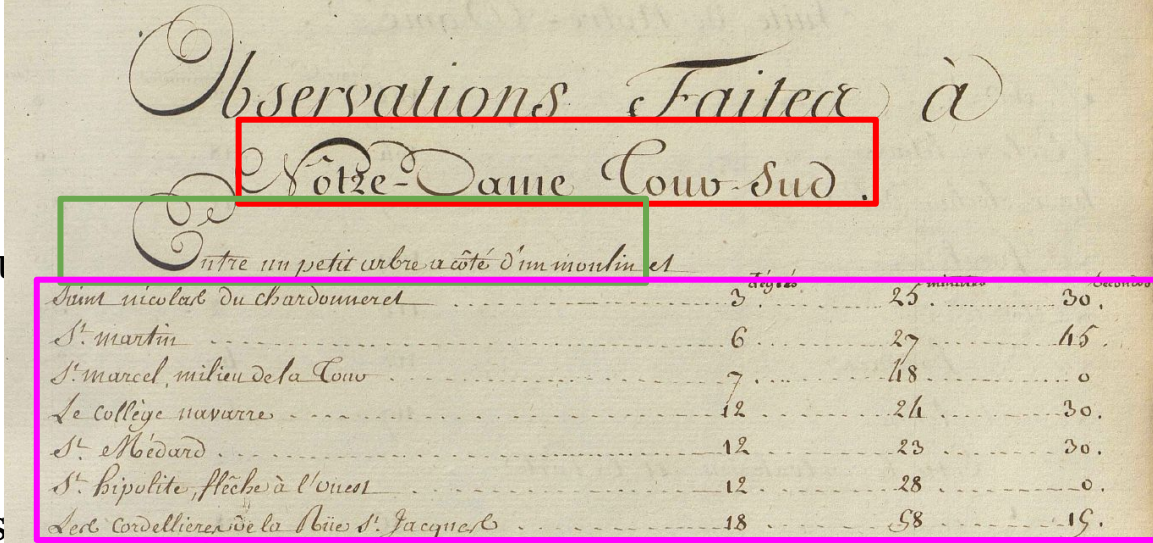 Observations Faites à
Nôtre-Dame Tour Sud.
Entre un petit arbre a côté d'un moulin et
degrés minutes secondes
Saint nicolas du chardonneret 3 25 30.
St. martin 6 27 45
St. marcel, milieu de la Tour 7 48 0
Le collège navarre 12 24 30.
St. Médard 12 23 30.
St. hipolite, flêche à l'ouest 12 28 0.
Les Cordellieres de la Rüe St. Jacques 18 58 15.